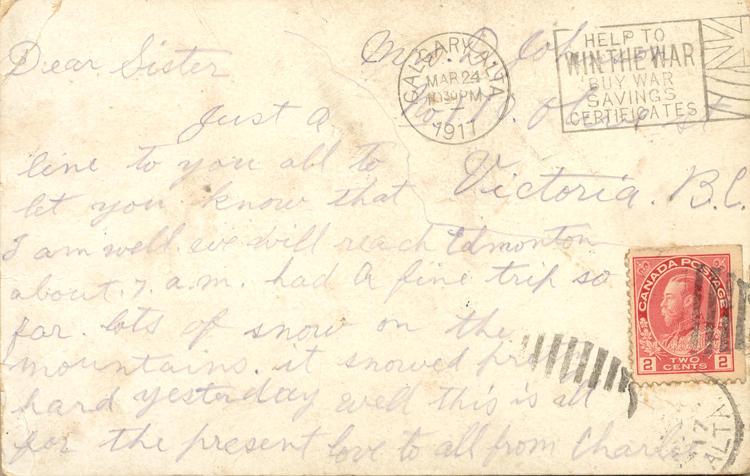 Dear Sister
Just a
line to you all to
let you know that
I am well. we will reach Edmonton
about. 7. a.m. had a fine trip so
far. lots of snow on the
mountains. it snowed
hard yesterday well this is all
for the present love to all from Charlie
Mrs. D. Johnson
Victoria. B.C.
CALGARY, ALTA
MAR 24
10 30 PM
1917
HELP TO
WIN THE WAR
BUY WAR
SAVINGS
CERTIFICATES
CANADA POSTAGE
2 TWO CENTS 2
17
ALTA